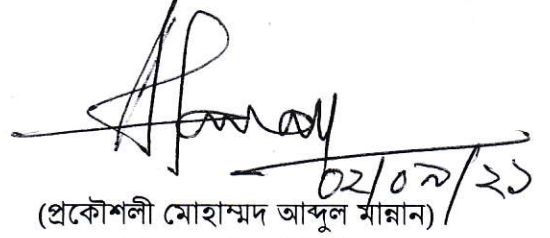 ০২/০৯/২১
(প্রকৌশলী মোহাম্মদ আব্দুল মান্নান)